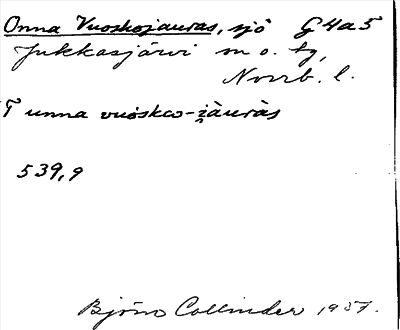 Onna Vuoskojauras, sjö G4a5
Jukkasjärvi sn o. tg,
Norrb. l.
T unna vuosko-jauràs
539,9
Björn Collinder 1957.